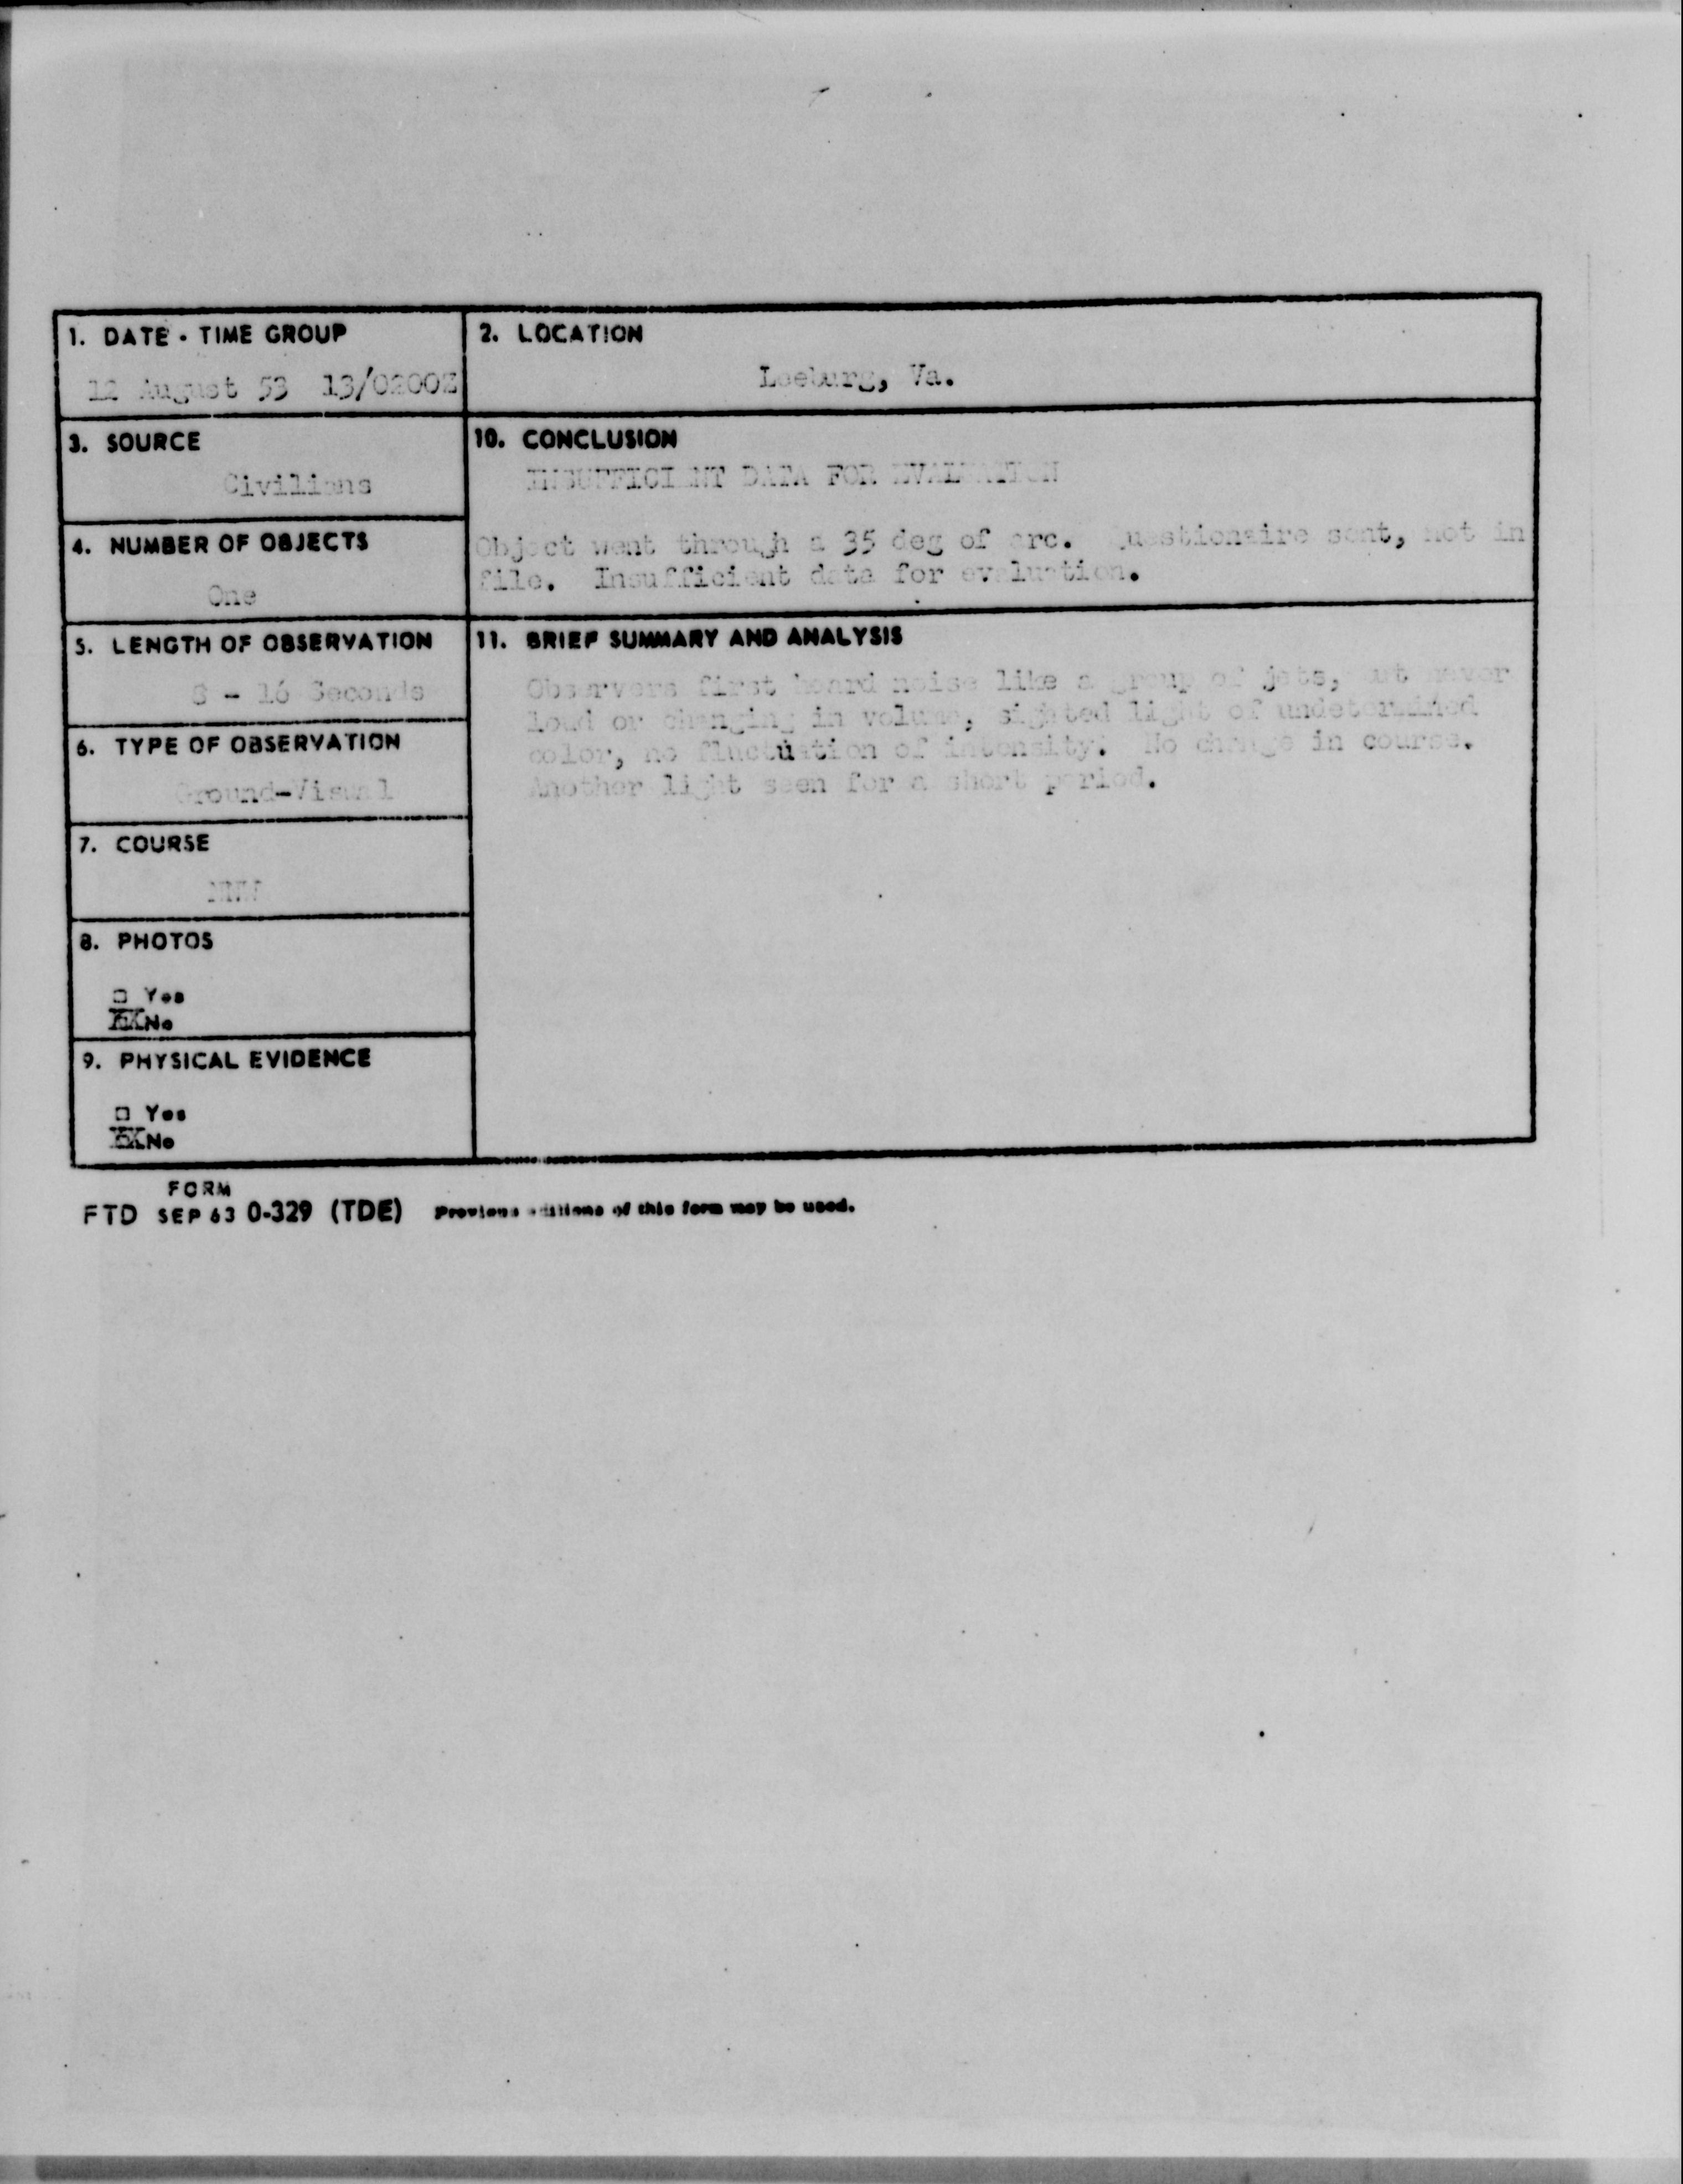 1. DATE - TIME GROUP
12 August 53 13/0200Z
2. LOCATION
Leeburg, Va.
3. SOURCE
Civilians
10. CONCLUSION
INSUFFICIENT DATA FOR EVALUATION
Object went through a 35 deg of arc. Questionaire sent, not in
file. Insufficient data for evaluation.
4. NUMBER OF OBJECTS
One
5. LENGTH OF OBSERVATION
8 - 16 Seconds
11. BRIEF SUMMARY AND ANALYSIS
Observers first heard noise like a group of jets, but never
loud or changing in volume, sighted light of undetermined
color, no fluctuation of intensity. No change in course.
Another light seen for a short period.
6. TYPE OF OBSERVATION
Ground-Visual
7. COURSE
8. PHOTOS
□ Yes
No
9. PHYSICAL EVIDENCE
□ Yes
No
FORM
FTD SEP 63 0-329 (TDE) Previous editions of this form may be used.